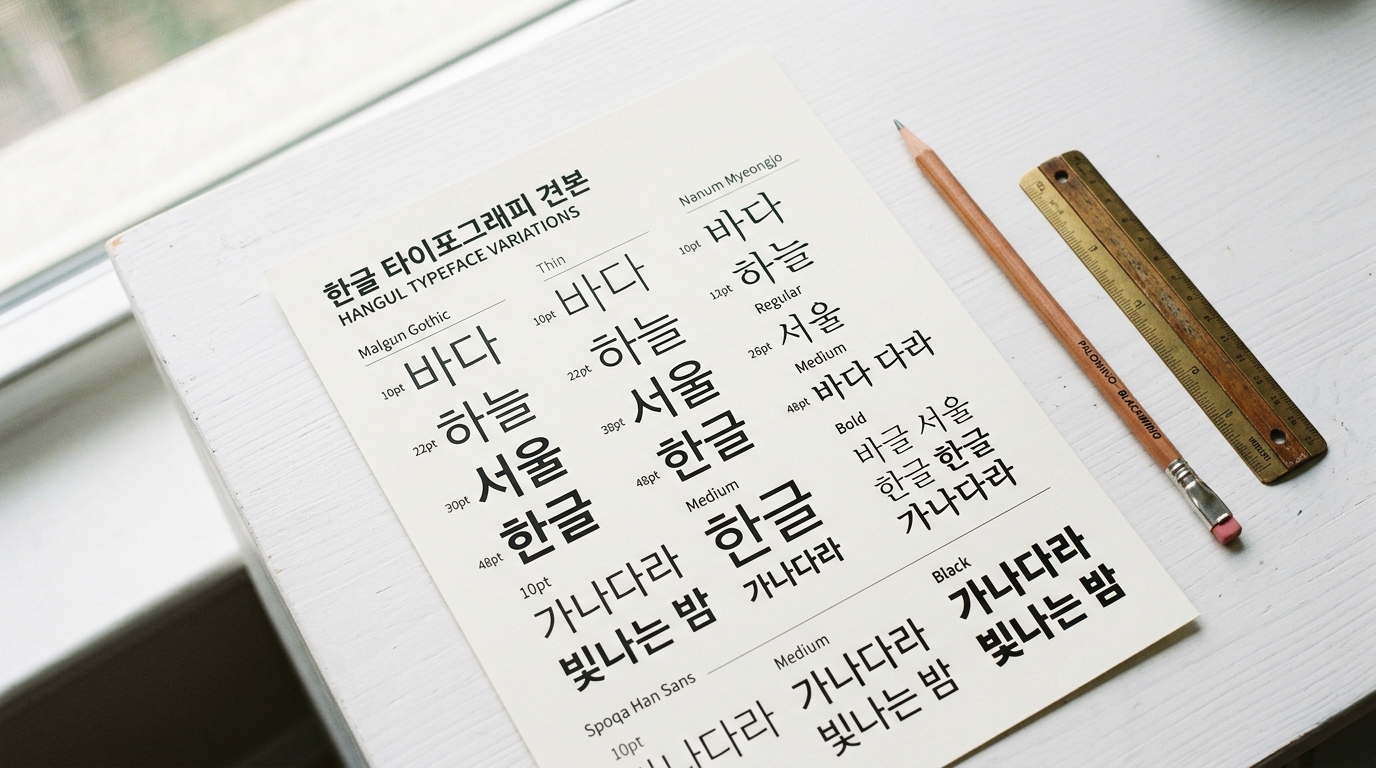 한글 타이포그래피 견본
HANGUL TYPEFACE VARIATIONS
Malgun Gothic
10pt 바다
22pt 하늘
30pt 서울
48pt 한글
10pt
가나다라
빛나는 밤
Thin
10pt 바다
22pt 하늘
38pt 서울
48pt 한글
Medium
한글
가나다라
Nanum Myeongjo
10pt 바다
하늘
Regular
26pt 서울
Medium
48pt 바다 다라
Bold
바글 서울
한글 한글
가나다라
Spoqa Han Sans
10pt
나다라
Medium
가나다라
빛나는 밤
Black
가나다라
빛나는 밤